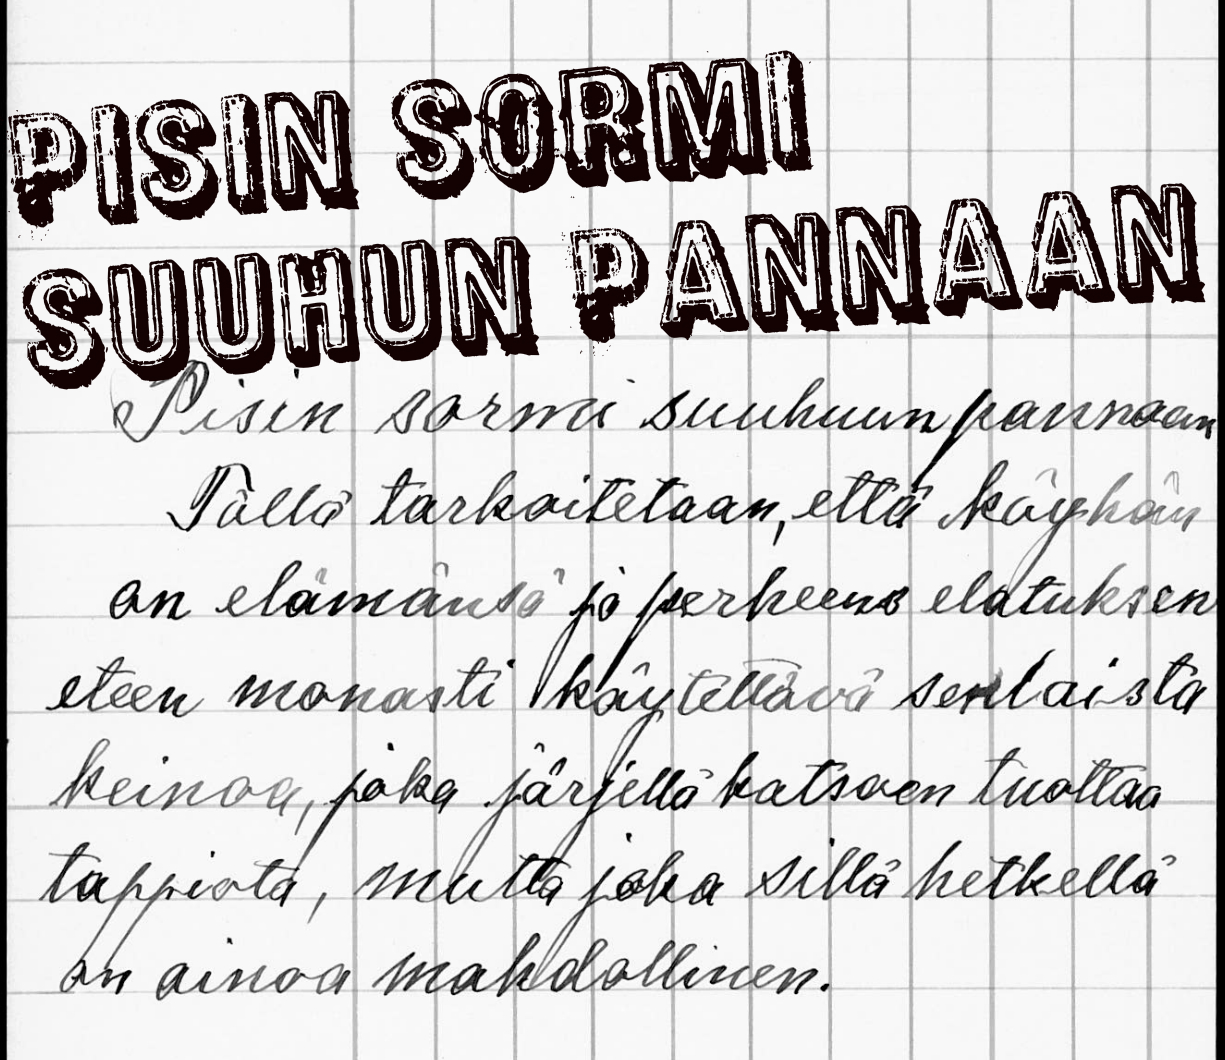 PISIN SORMI
SUUHUN PANNAAN
Pisin sormi suuhuun pannaan
Tällä tarkoitetaan, että köyhän
on elämänsä ja perheens elatuksen
eteen monasti käytettävä senlaista
keinoa, joka järjellä katsoen tuottaa
tappiota, mutta joka sillä hetkellä
on ainoa mahdollinen.